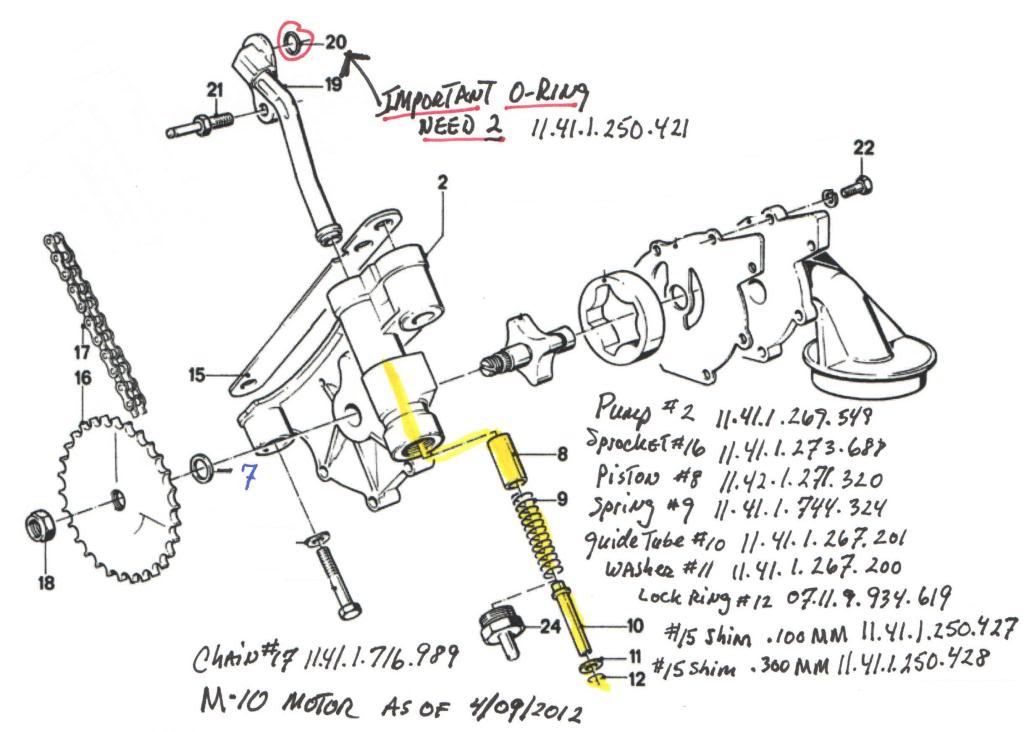 20
19
21
IMPORTANT O-RING
NEED 2 11.41.1.250.421
22
2
17
16
15
7
18
8
9
24
10
11
12
Pump #2 11.41.1.269.549
Sprocket #16 11.41.1.273.688
Piston #8 11.42.1.271.320
Spring #9 11.41.1.744.324
guide Tube #10 11.41.1.267.201
WASher #11 11.41.1.267.200
Lock Ring #12 07.11.9.934.619
#15 Shim .100 MM 11.41.1.250.427
#15 Shim .300 MM 11.41.1.250.428
Chain #17 11.41.1.716.989
M-10 MOTOR AS OF 4/09/2012